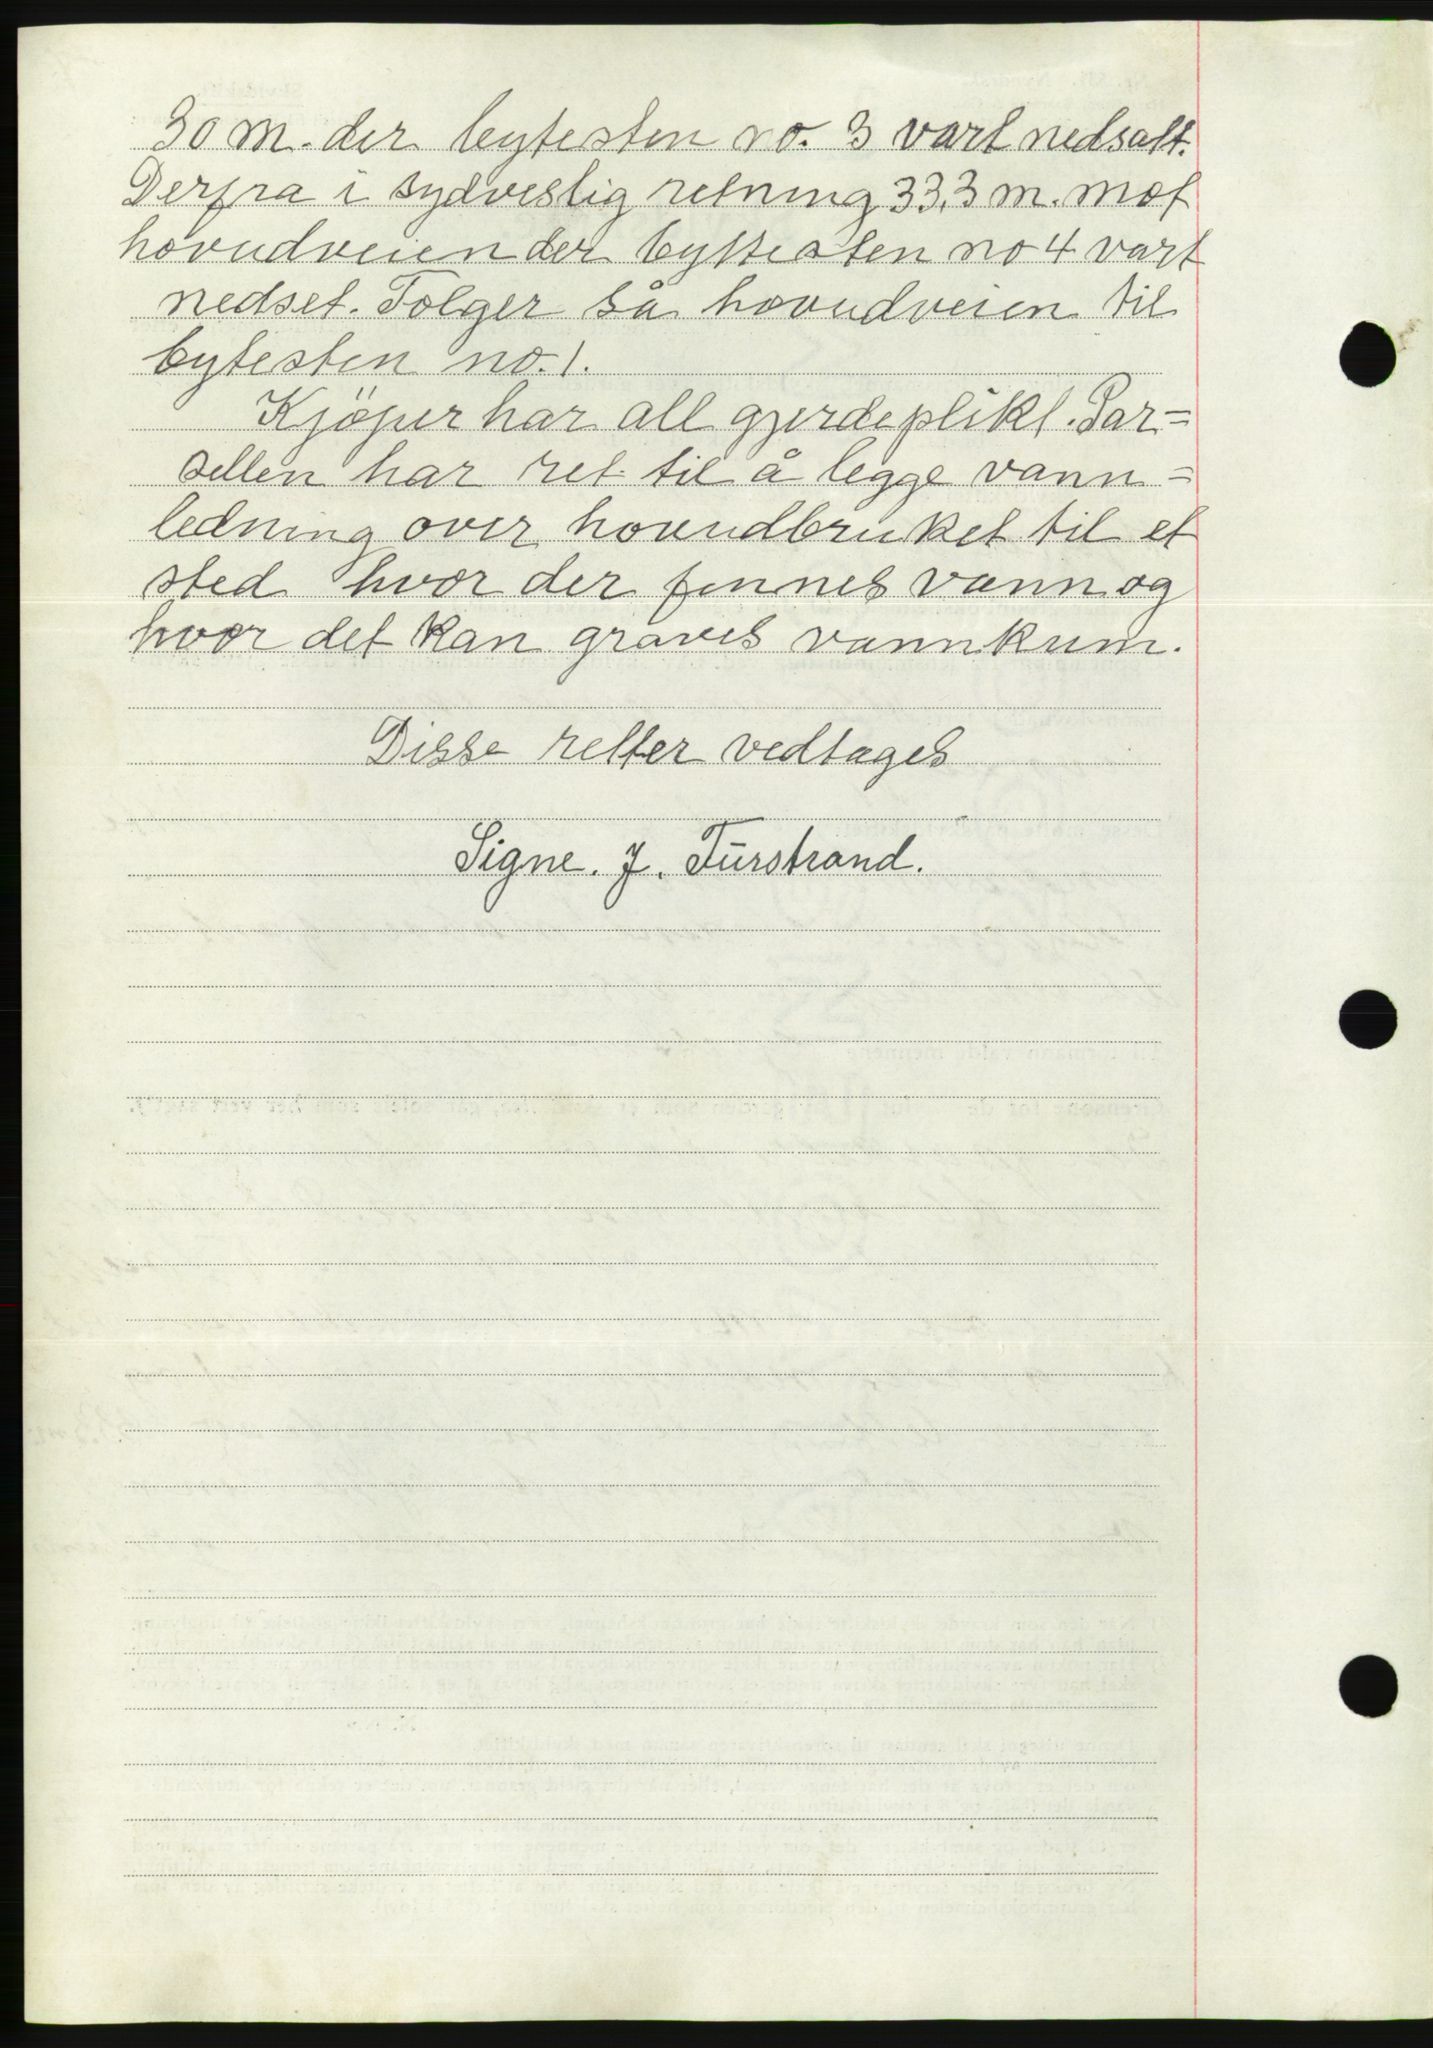 30 m. der bytesten no. 3 vart nedsatt.
Derfra i sydvestlig retning 33,3 m. mot
hovudveien der byttesten no 4 vart
nedset. Følger så hovudveien til
bytesten no. 1.
Kjöper har all gjerdeplikt. Par=
sellen har ret til å legge vann=
ledning over hovudbruket til et
sted hvor der finnes vann og
hvor det kan graves vannkum.
Disse retter vedtages
Signe. J. Furstrand.